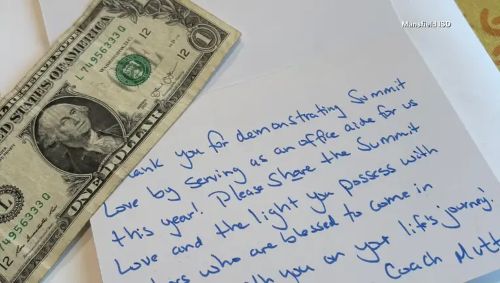 Mansfield ISD
STATES OF AMERICA
L 74956333 Q
12
12
1
L
ONE DOLLAR
74956333 Q
12
ank you for demonstrating Summit
Love by serving as an office aide for us
this year! Please share the Summit
Love and the light you possess with
who are blessed to come in
you on your life's journey!
Coach Mutt